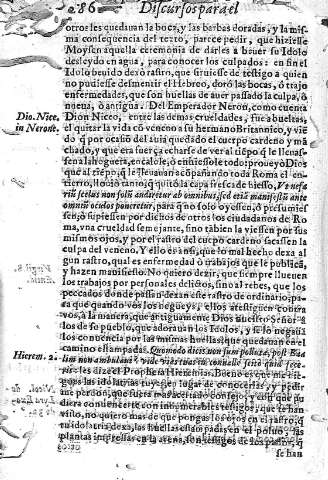 286 Discursos para el
otros les quedauan la boca, y las barbas doradas, y la mis-
ma consequencia del texto, parece pedir, que hiziesse
Moysen aquella ceremonia de darles a beuer su Idolo
desleydo en agua, para conocer los culpados: en fin el
Idolo beuido dexò rastro, que siruiesse de testigo a quien
no pudiesse desmentir el hebreo, dorò las bocas, ò trajo
enfermedades, que son huellas de auer passado la culpa, ò
nueua, ò antigua. Del Emperador Neron, como cuenta
Dio. Nice. in Nerone.
Dion Niceo, entre las demas crueldades, fue a bueltas,
el quitar la vida cõ veneno a su hermano Britannico, y vie
do q̃ por ocasiõ del auia quedado el cuerpo cardeno y mã
chado, y que era fuerça echarse de ver al tiẽpo q̃ le lleuas-
sen a la hoguera, encalole, ò enhiessole todo: proueyò Dios
que al tiẽpo, q̃ le lleuauan acõpañando toda Roma el en-
tierro, llouiò tanto, q̃ quitò la capa fresca de hiesso, Vt nefa
rium scelus non solũ audiretur ab omnibus, sed etiã manifestũ ante
omnium oculos poneretur, para que no solo oyessen, ò presumies
sen, ò supiessen por dichos de otros los ciudadanos de Ro-
ma, vna crueldad semejante, sino tãbien la viessen por sus
mismos ojos, y por el rastro del cuerpo cardeno sacassen la
culpa del veneno. Y ello es ansi, que lo mal hecho dexa al
gun rastro, qual es enfermedad ò trabajos que le publicã,
y hazen manifiesto. No quiero dezir, que siempre lluenen
los trabajos por personales delitos, sino al rebes, que los
peccados donde passen dexan este rastro de ordinario, pa-
ra que quando vos los negueys, ellos atestiguen contra
vos, a la manera, que antiguamente Dios nuestro Señor a
los de su pueblo, que adorauan los Idolos, y si lo negauã
los conuencia por las mismas huellas, que quedauan en el
Hierem. 2.
camino estampadas. Quomodo dicis non sum polluta, post Baa
lim non ambulaui? vide vias tuas in conualle scito quid fece-
ris: les dize el Propheta Hieremias. Bueno es que me
las idolatrias en lugar de conocerlas, y pedir
me perdon, que fuera mas acertado consejo:
diera conuencerte con innumerables testigos, que te han
visto, no quiero mas de que pongas los ojos en el rastro, q̃
tu idolatria dexa, las huellas en el poluo, las
plantas impressas en la arena, son testigos de
se han